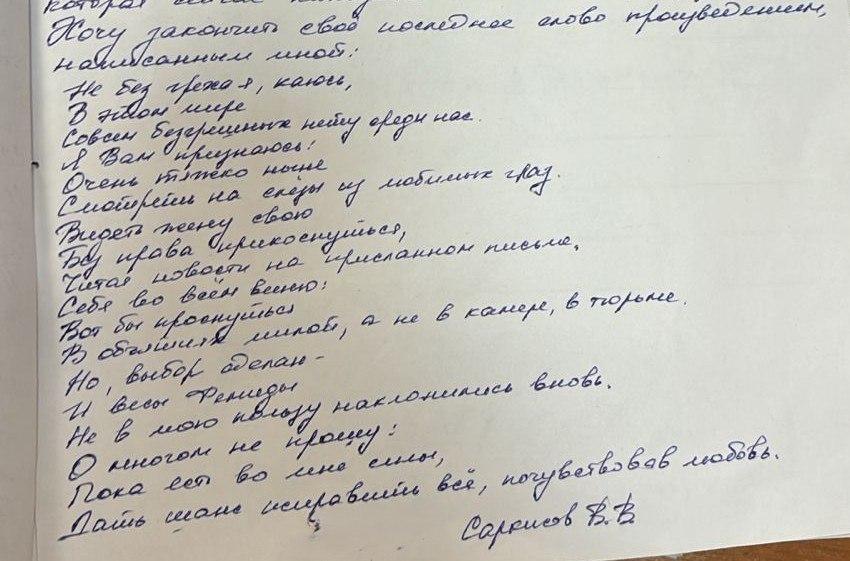 которая сейчас
Хочу закончить своё последнее слово произведением,
написанным мной:
Не без греха я, каюсь,
В этом мире
Совсем безгрешных нету среди нас.
Я Вам признаюсь:
Очень тяжко ныне
Смотреть на слёзы из любимых глаз.
Видеть жену свою
Без права прикоснуться,
Читая новости на присланном письме.
Себя во всём виню:
Вот бы проснуться
В объятиях милой, а не в камере, в тюрьме.
Но, выбор сделан -
И весы Фемиды
Не в мою пользу наклонились вновь.
О многом не прошу:
Пока есть во мне силы,
Дать шанс исправить всё, почувствовав любовь.
Саркисов В.В.